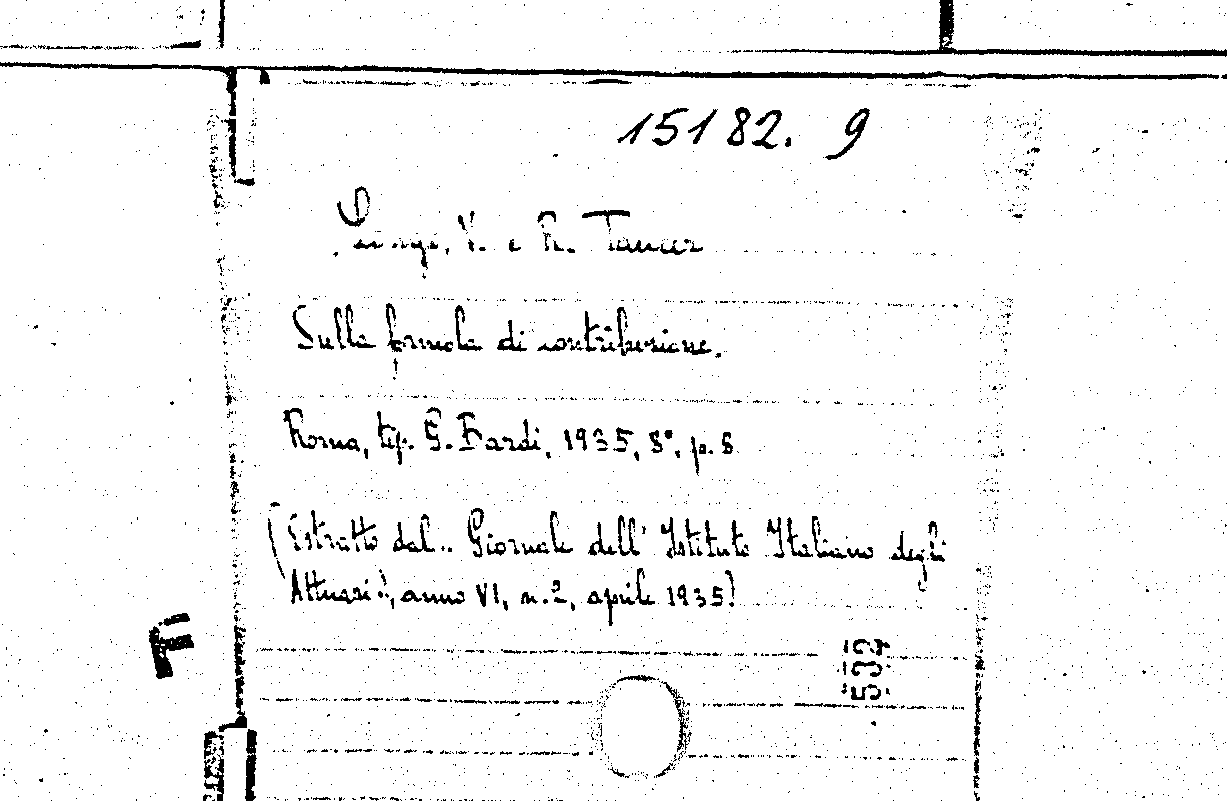 15182. 9
V. e R. Tancer
Sulla formola di contribuzione.
Roma, tip. G. Bardi, 1935, 8°, p. 8
(Estratto dal „ Giornale dell' Istituto Italiano degli
Attuari", anno VI, n. 2, aprile 1935)
F